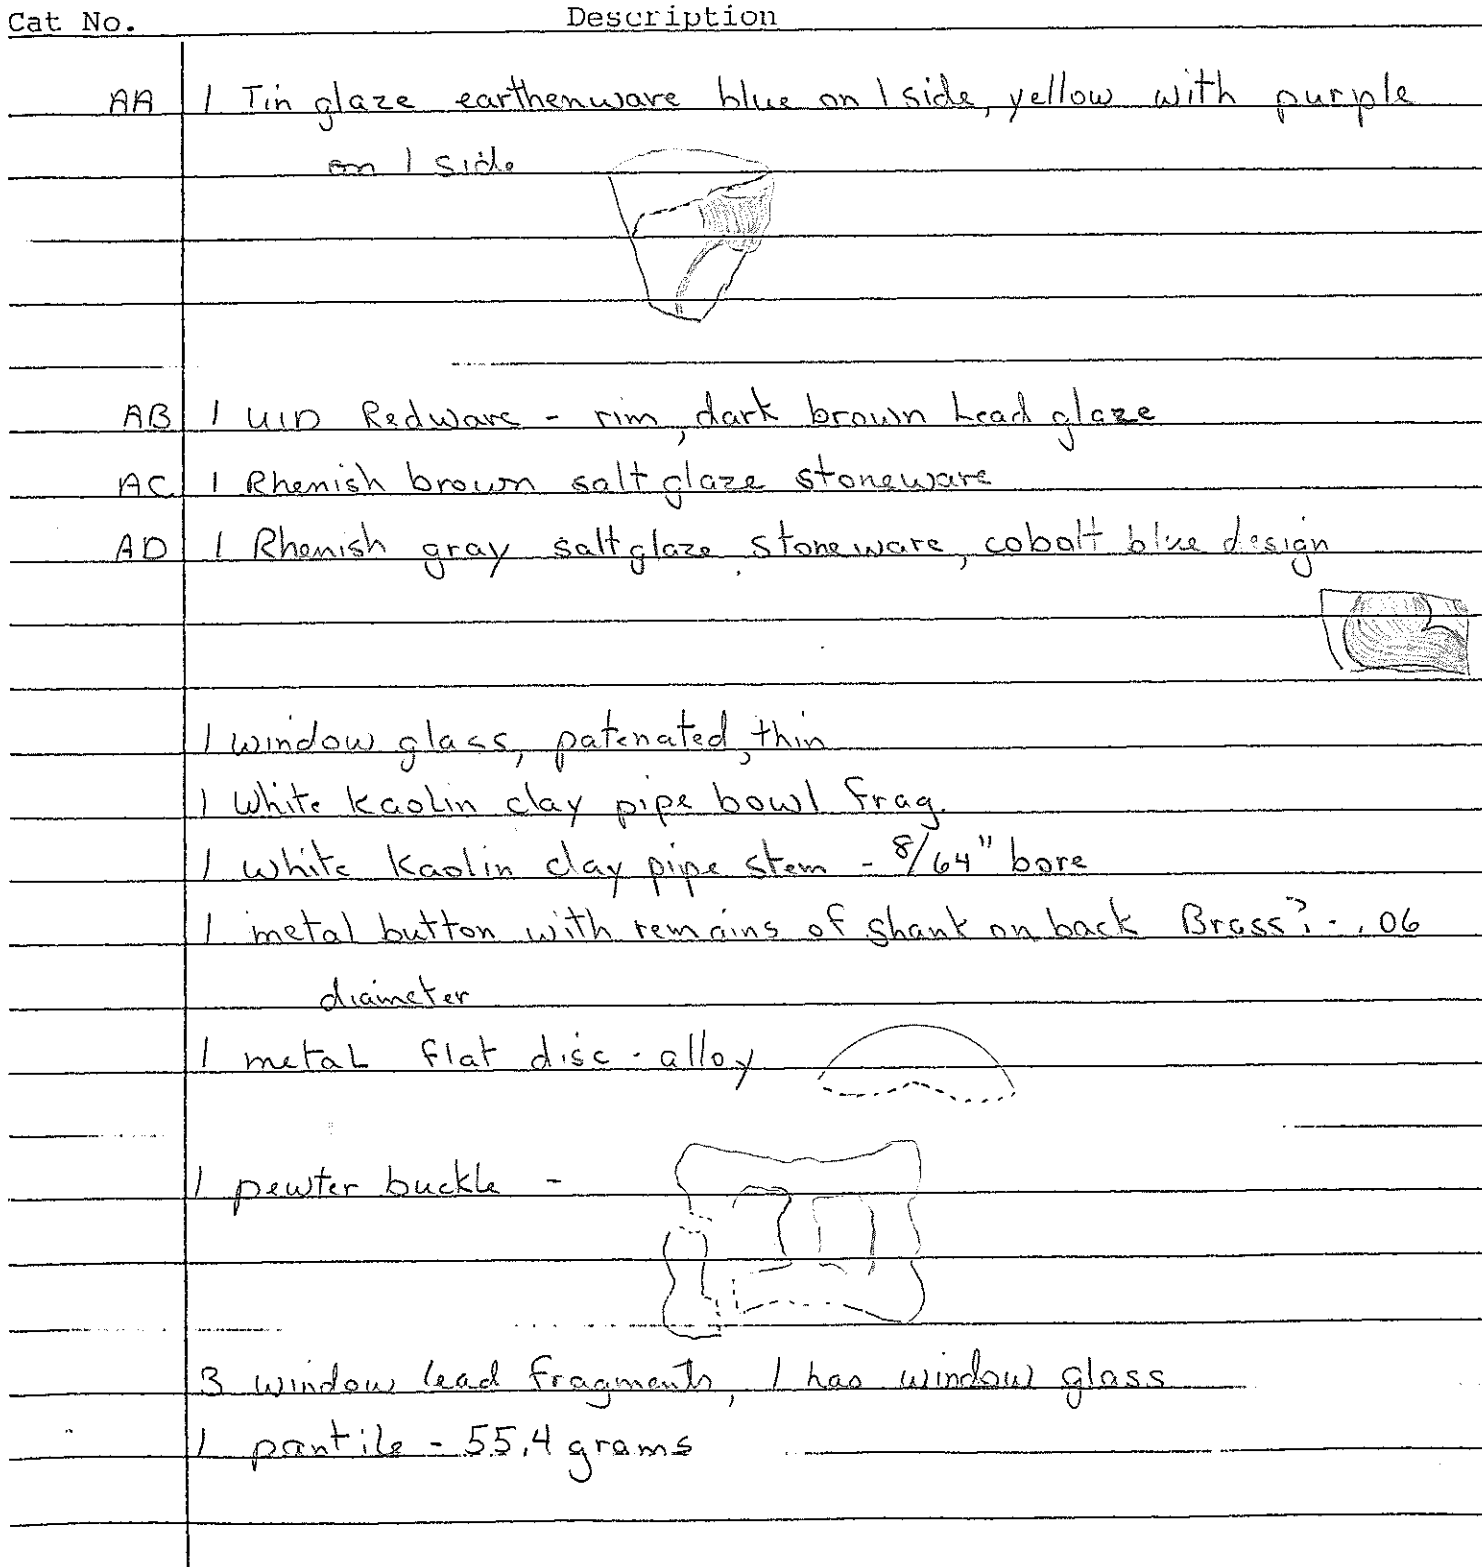 Cat No. Description
AA 1 Tin glaze earthenware blue on 1 side, yellow with purple
on 1 side
AB 1 UID Redware - rim, dark brown Lead glaze
AC 1 Rhenish brown salt glaze stoneware
AD 1 Rhenish gray salt glaze stoneware, cobalt blue design
1 window glass, patenated, thin
1 White kaolin clay pipe bowl frag.
1 white kaolin clay pipe stem - 8/64" bore
1 metal button with remains of shank on back Brass? - .06
diameter
1 metal flat disc - alloy
1 pewter buckle -
3 window lead fragments, 1 has window glass
1 pantile - 55.4 grams